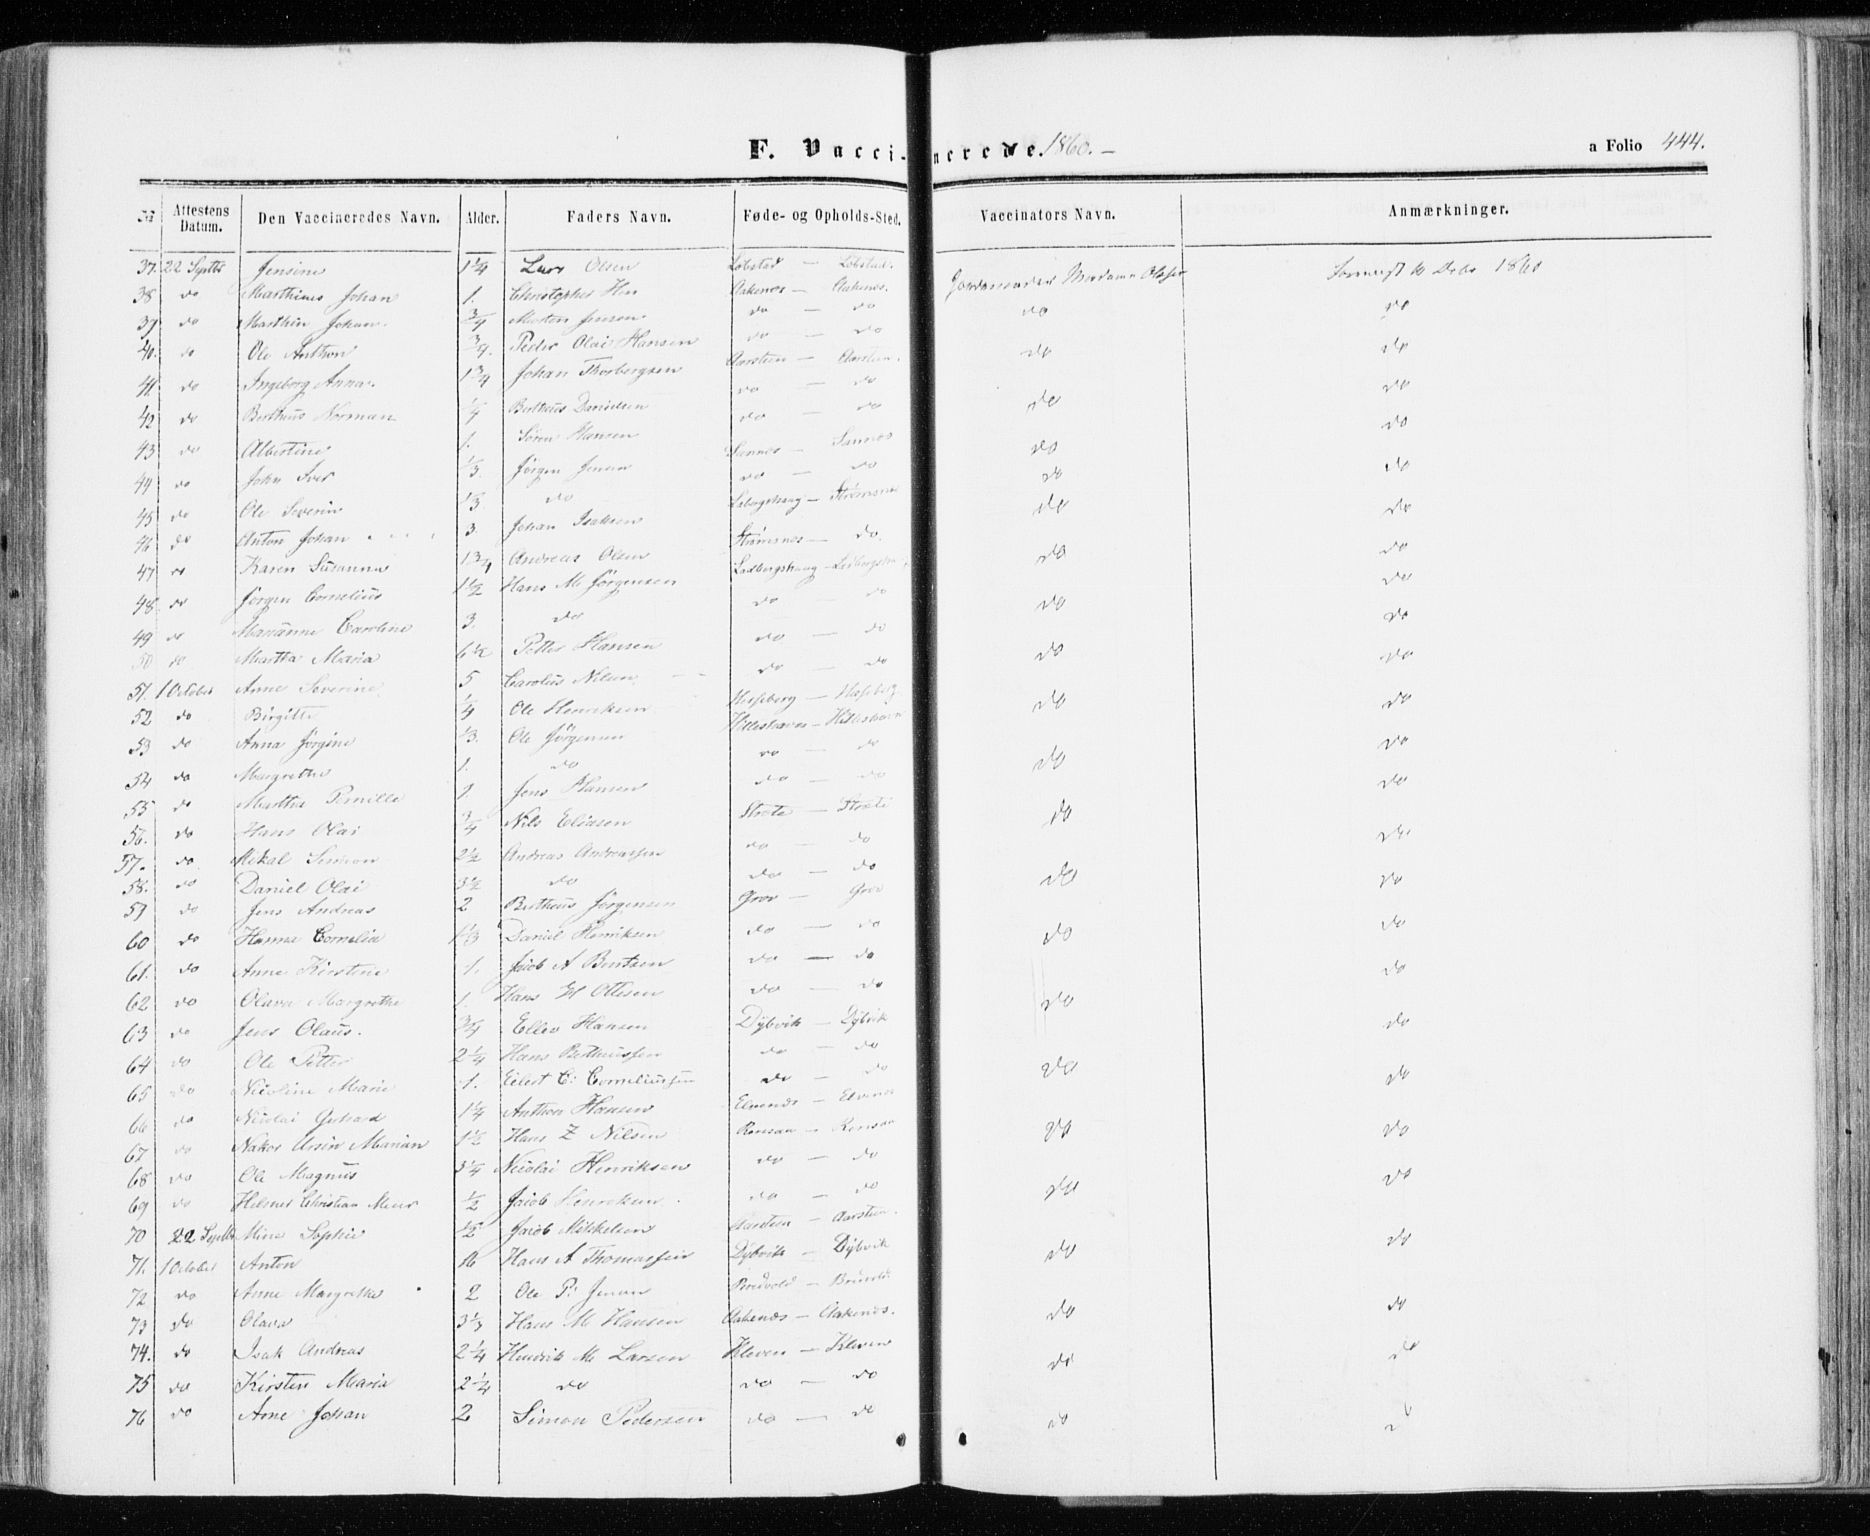 F. Vaccinerede. 1860. — a Folio 444.
№ Attestens Datum. Den Vaccineredes Navn. Alder. Faders Navn. Føde- og Opholds-Sted. Vaccinators Navn. Anmærkninger.
37. 22 Septbr Jensine 1 1/4 Lars Olsen Løbstad — Løbstad. Madame Olsen 1860
38 do Marthinus Johan 1. Christopher Aakenes — Aakenes. do do
39 do Marthin Johan. 3/4 Morten Jensen do — do do
40. do Ole Anthon 3/4. Peder Olai Hansen do — do do do
41. do Ingeborg Anna 1 3/4 Johan Thorbergsen Aarsteen — Aarsteen. do
42 do Bertheus Norman 1/4 Bertheus Danielsen do — do do do
43 do Albertine 1. Søren Hansen do — do do
44 do John Iver 1/3. Jørgen Jensen Sannes — Sannes do do
45 do Ole Severin 1/3 do do — do do do
46 do Anton Johan 3. Johan Isaksen — Strømsnes do
47 do Karen Susanna 1 3/4 Andreas Olsen Strømsnes — do. do do
48 do Jørgen Cornelius 1 1/2 Hans M Jørgensen Ledbergshaug — do
49 do Marianne Caroline 3. do do — do do do
50 do Martha Maria 6 1/2 Petter Hansen do — do do do
51. 1 October Anne Severine 5 Carolus Nilsen do — do do
52 do Birgitte 1/4 Ole Henriksen — do do
53 do Anna Jørgine 1/3. Ole Jørgensen Hilleshavn — Hilleshavn do
54 do Margrethe 1. do do — do do do
55 do Martha Pernille 1. Jens Hansen do — do do
56. do Hans Olai 3/4 Nils Eliasen Strøte — do do
57. do Mikal Simon 2 1/2 Andreas Andreassen do — do
58. do Daniel Olai 3 1/2 do do — do do do
59 do Jens Andreas 2 Bertheus Jørgensen Grov — Grov
60 do Hanna Cornelia 1 1/3 Daniel Henriksen do — do do do
61. do Anne Kirstine 1. Jacob A Bentsen do — do do
62 do Olava Margrethe 1. Hans H Ottesen do — do do
63 do Jens Olaus. 3/4 Ellev Hansen Dybvik — Dybvik do
64 do Ole Petter 2 1/4 Hans Bertheussen do — do do
65 do Nicoline Marie 1. Eilert C: Corneliussen do — do do
66 do Nicolai Gerhard 1 1/4 Anthon Hansen Elvenes — Elvenes
67 do Nakor Ursin Marian 1 1/2 Hans Z Nilsen — do do
68 do Ole Magnus 3 1/4 Nicolai Henriksen do — do
69 do Helmer Christian 1/2 Jacob Henriksen do — do do do
70 22 Septbr Mina Sophie 1/2 Jacob Mikkelsen Aarsteen — Aarsteen. do
71. 1 October Anton 16 Hans A Thomassen Dybvik — Dybvik do
72 do Anne Margrethe 2 Ole P: Jensen
73 do Olava 3 1/3 Hans M Hansen Aakenes — Aakenes. do do
74. do Isak Andreas 2 1/4 Hendrik M Larsen Kleven — Kleven do
75 do Kirsten Maria 2 1/4 do do — do do
76 do Arne Johan 2 Simon Pedersen do — do do